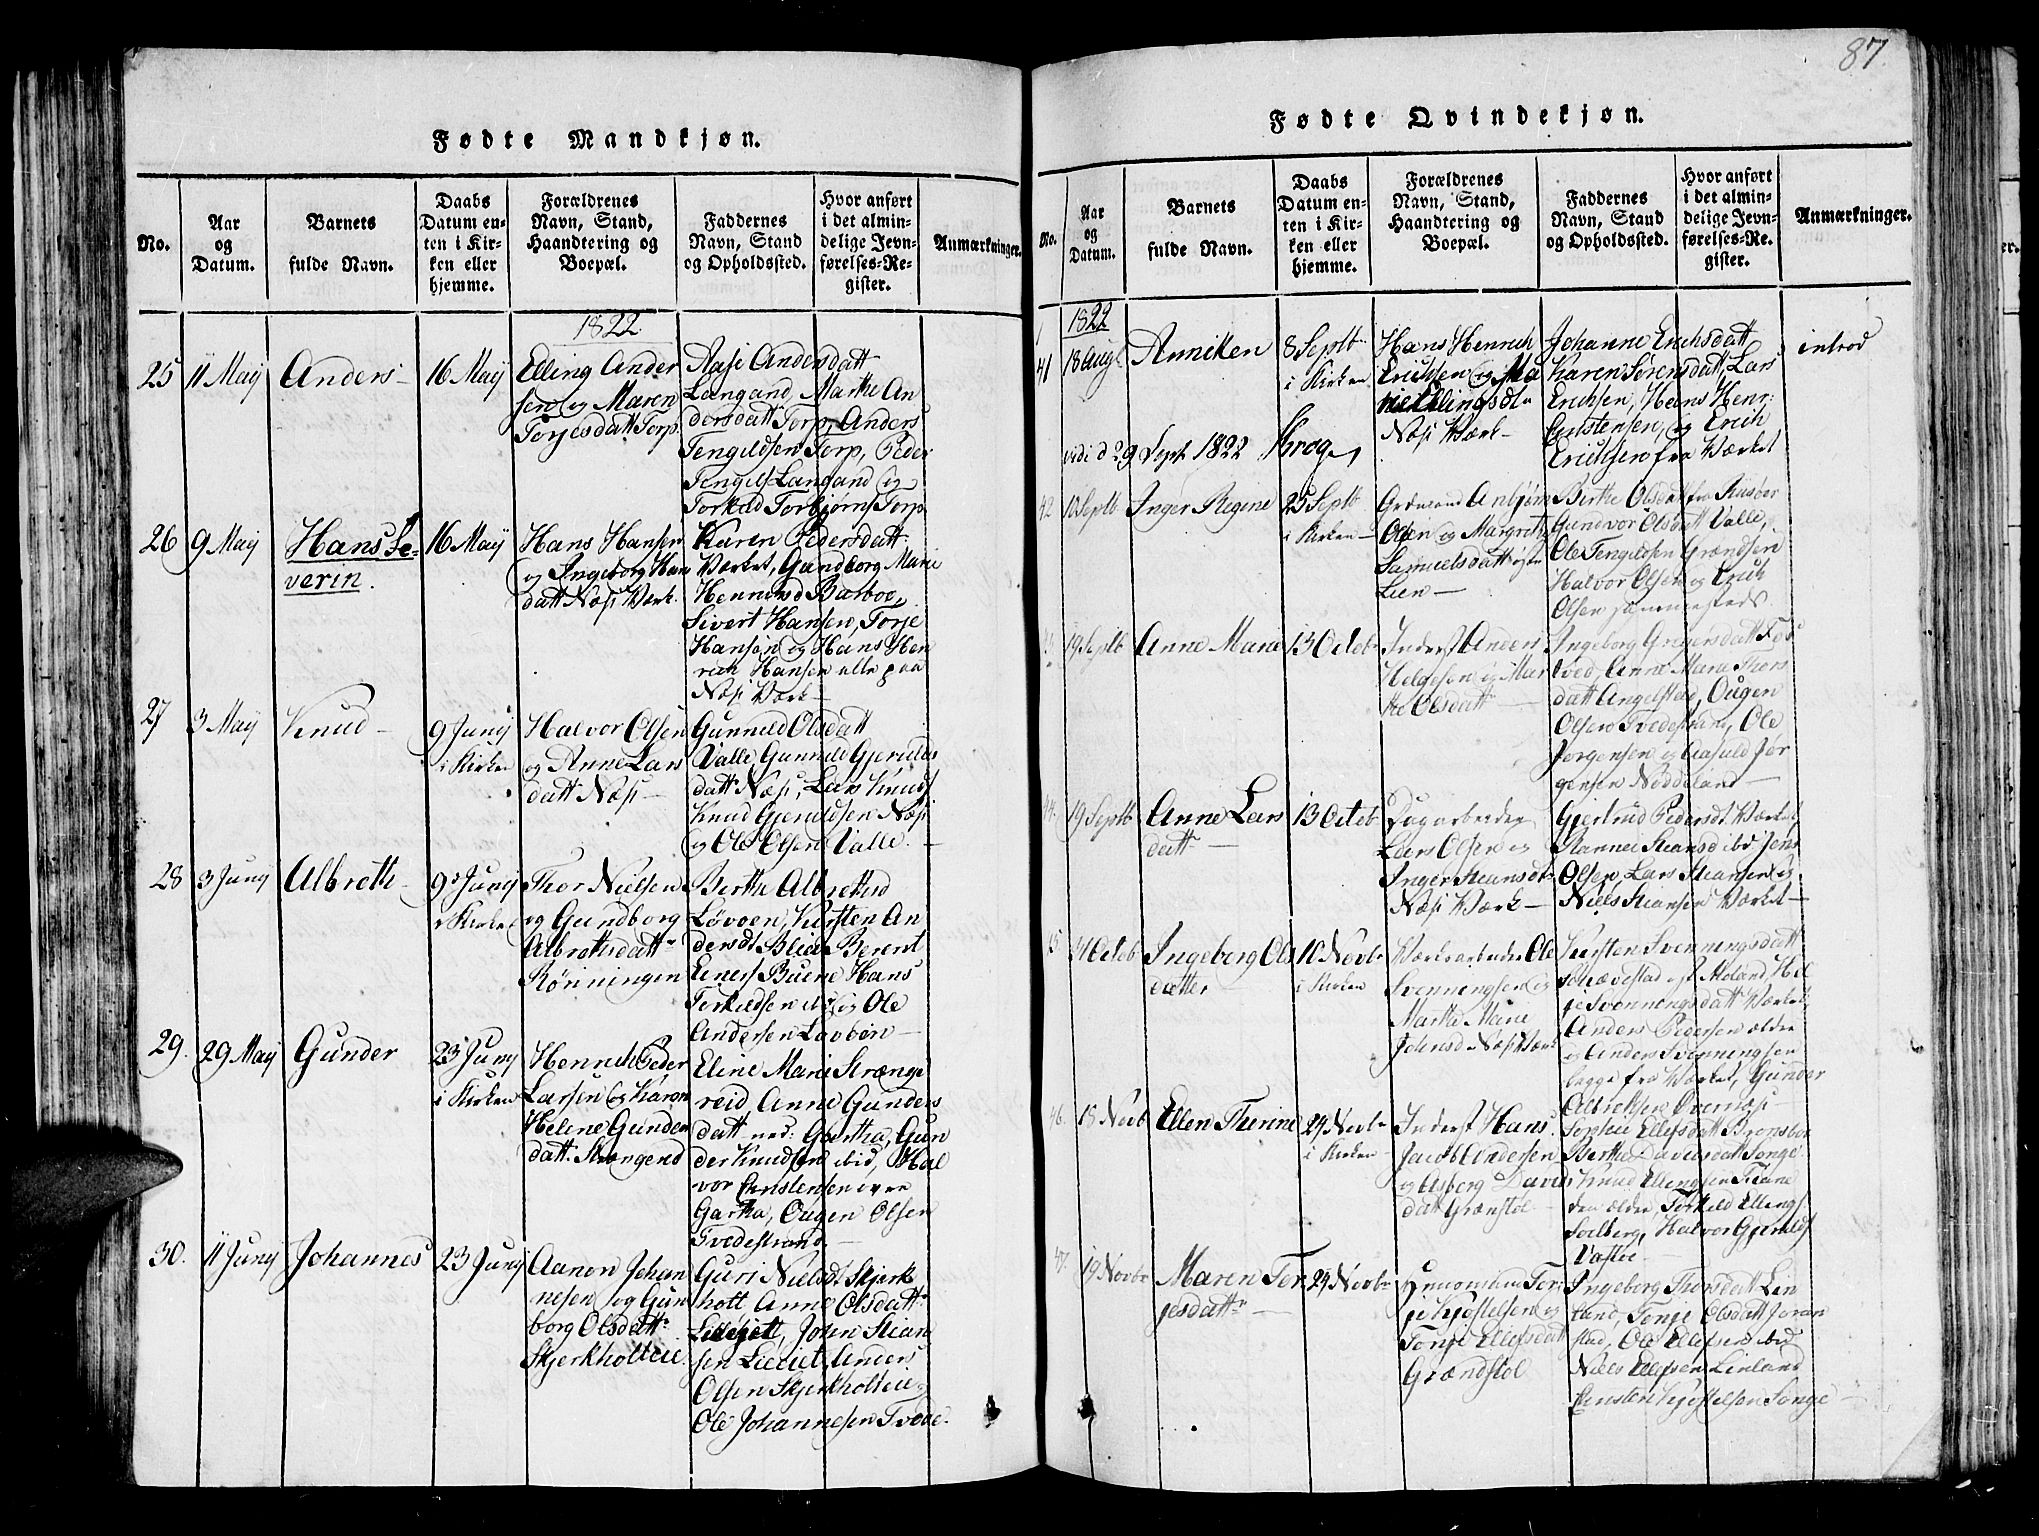 87.
Fødte Mandkjøn.
No.
Aar
og
Datum.
Barnets
fulde Navn.
Daabs
Datum en-
ten i Kir-
ken eller
hjemme.
Forældrenes
Navn, Stand,
Haandtering og
Boepæl.
Faddernes
Navn, Stand
og Opholdssted.
Hvor anført
i det almin-
delige Jevn-
førelses-Re-
gister.
Anmærkninger.
1822
25
11 Maij
Anders
16 Maij
Elling Ander
sen og Maren
Torjesdatt Torp
Aase Andersdatt
Langand, Marthe An
dersdatt Torp, Anders
Tengelsen Torp, Peder
Tengels Langand og
Torkild Torbjørns Torp
26
9 Maij
Hans Se-
verin.
16 Maij
Hans Hansen
og Ingeborg Hans
datt Næs Værk.
Karen Pedersdatt
Værket, Gundborg Marie
Henriksd Barboe,
Sivert Hansen, Torje
Hansen og Hans Hen
rich Hansen alle paa
Næs Værk
27
3 Maij
Knud
9 Junij
i Kirken
Halvor Olsen
og Anne Lars
datt Næs
Gunnild Olsdatt
Valle, Gunnild Gjerulds
datt Næs, Lars Knuds
Knud Gjeruldsen Næs
og Ole Olsen Valle.
28
3 Junij
Albreth
9 Junij
i Kirken
Thor Nielsen
og Gundborg
Albrethsdatt
Rønningen
Berthe Albrethsd
Løvoen, Kirsten An
dersdt Blie Berent
Einers Buene Hans
Terkildsen og Ole
Andersen Løvøen
29.
29 Maij
Gunder
23 Junij
i Kirken
Henrich Peder
Larsen og Karen
Helene Gunders
datt. Strængereid
Eline Marie Strænge
reid Anne Gunders
datt ned: Gjertha, Gun
der Knudsen ibid, Hal
vor Christensen øvre
Gartha, Ougen Olsen
Tvedestrand
30.
11 Junij
Johannes
23 Junij
Aanon Johan
nesen og Gun
borg Olsdatt
Skjerkholteie.
Guri Nielsdt Skjerk
holt Anne Olsdatt
Lilleiet, John Stian
sen Lieeiet, Anders
Olsen Skjerkholteie
Ole Johannesen Tvede
Fødte Qvindekjøn.
No.
Aar
og
Datum.
Barnets
fulde Navn.
Daabs
Datum en-
ten i Kir-
ken eller
hjemme.
Forældrenes
Navn, Stand,
Haandtering og
Boepæl.
Faddernes
Navn, Stand
og Opholdssted.
Hvor anført
i det almin-
delige Jevn-
førelses-Re-
gister.
Anmærkninger.
1822
41
18 Aug
Anniken
8 Septb
i Kirken
Hans Henrich
Erichsen og Ma
Ellingsdt
Næs Værk
Johanne Erichsdatt
Karen Sørensdatt, Lars
Erichsen, Hans Henr:
Christensen, og Erich
Erichsen fra Værket
introd
vidi d 29 Sept 1822 Krog
42
10 Septb
Inger Regine
25 Septb
i Kirken
Anbjørn
Olsen og Margrethe
Samuelsdatt
Lien
Birthe Olsdatt fra Riisøer
Gundvor Olsdatt Valle,
Ole Tengeldsen Grændsen
Halvor Olsen og Erich
Olsen sammesteds.
19 Septb
Anne Marie
13 Octob
Inderst Anders
Helgesen og Mar
the Olsdatt
Ingeborg Gregersdatt Fos
tved, Anne Marie Thors
datt Angelstad, Ougen
Olsen Tvedestrand, Ole
Jørgensen og Aasuld Jør
gensen Nøddeland
44.
19 Septb
Anne Lars
datt
13 Octob
Dagarbeider
Lars Olsen og
Inger Stiansdt
Næs Værk
Gjertrud Pedersdt Værket
Stiansd ibd Jens
Olsen, Lars Stiansen og
Niels Stiansen Værket
45
31 Octob
Ingeborg Ols
datter
10 Novbr
i Kirken
Værksarbeider Ole
Svenningsen og
Marthe Marie
Johnsd Næs Værk
Kirsten Svenningsdatt
Skjævestad Moland, Hel
je Svenningsdatt Værket
Anders Pedersen ældre
og Anders Svenningsen
begge fra Værket, Gunder
Albretsen Øvernæs
46.
15 Novb
Ellen Therine
24 Novbr
i Kirken
Inderst Hans
Jacob Andersen
og Asberg Davids
datt Grønstøl
Sophie Ellefsdatt Bronsboe
Berthe Davidsdatt Songe
Knud Ellingsen Fiane
den ældre, Torkild Ellings
Soelberg, Halvor Gjerulds
Vastøe
47.
19 Novbr
Maren Tor
jesdatt
24 Novbr
Huusmand Tor
je Kjøstelsen og
Tonje Ellefsdatt
Grændstøl
Ingeborg Thorsdatt Lin
land, Tonje Olsdatt Joran
stad, Ole Ellefsen ibid
Niels Ellefsen Linland
Christen Kjøstelsen Songe